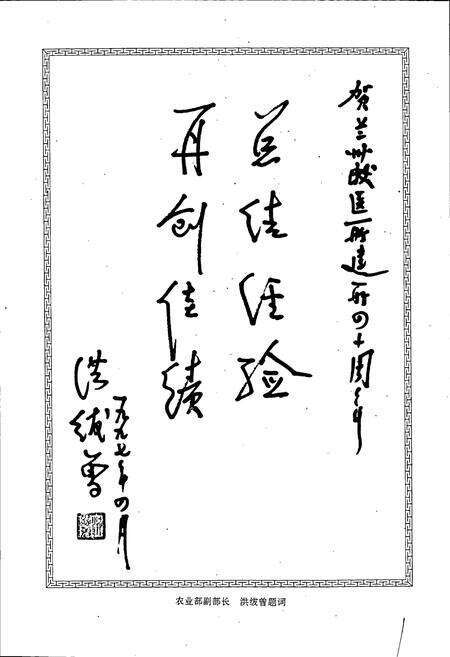 贺兰州兽医所建所四十周年
总结经验
再创佳绩
洪绂曾
一九九七年四月
农业部副部长 洪绂曾题词
1